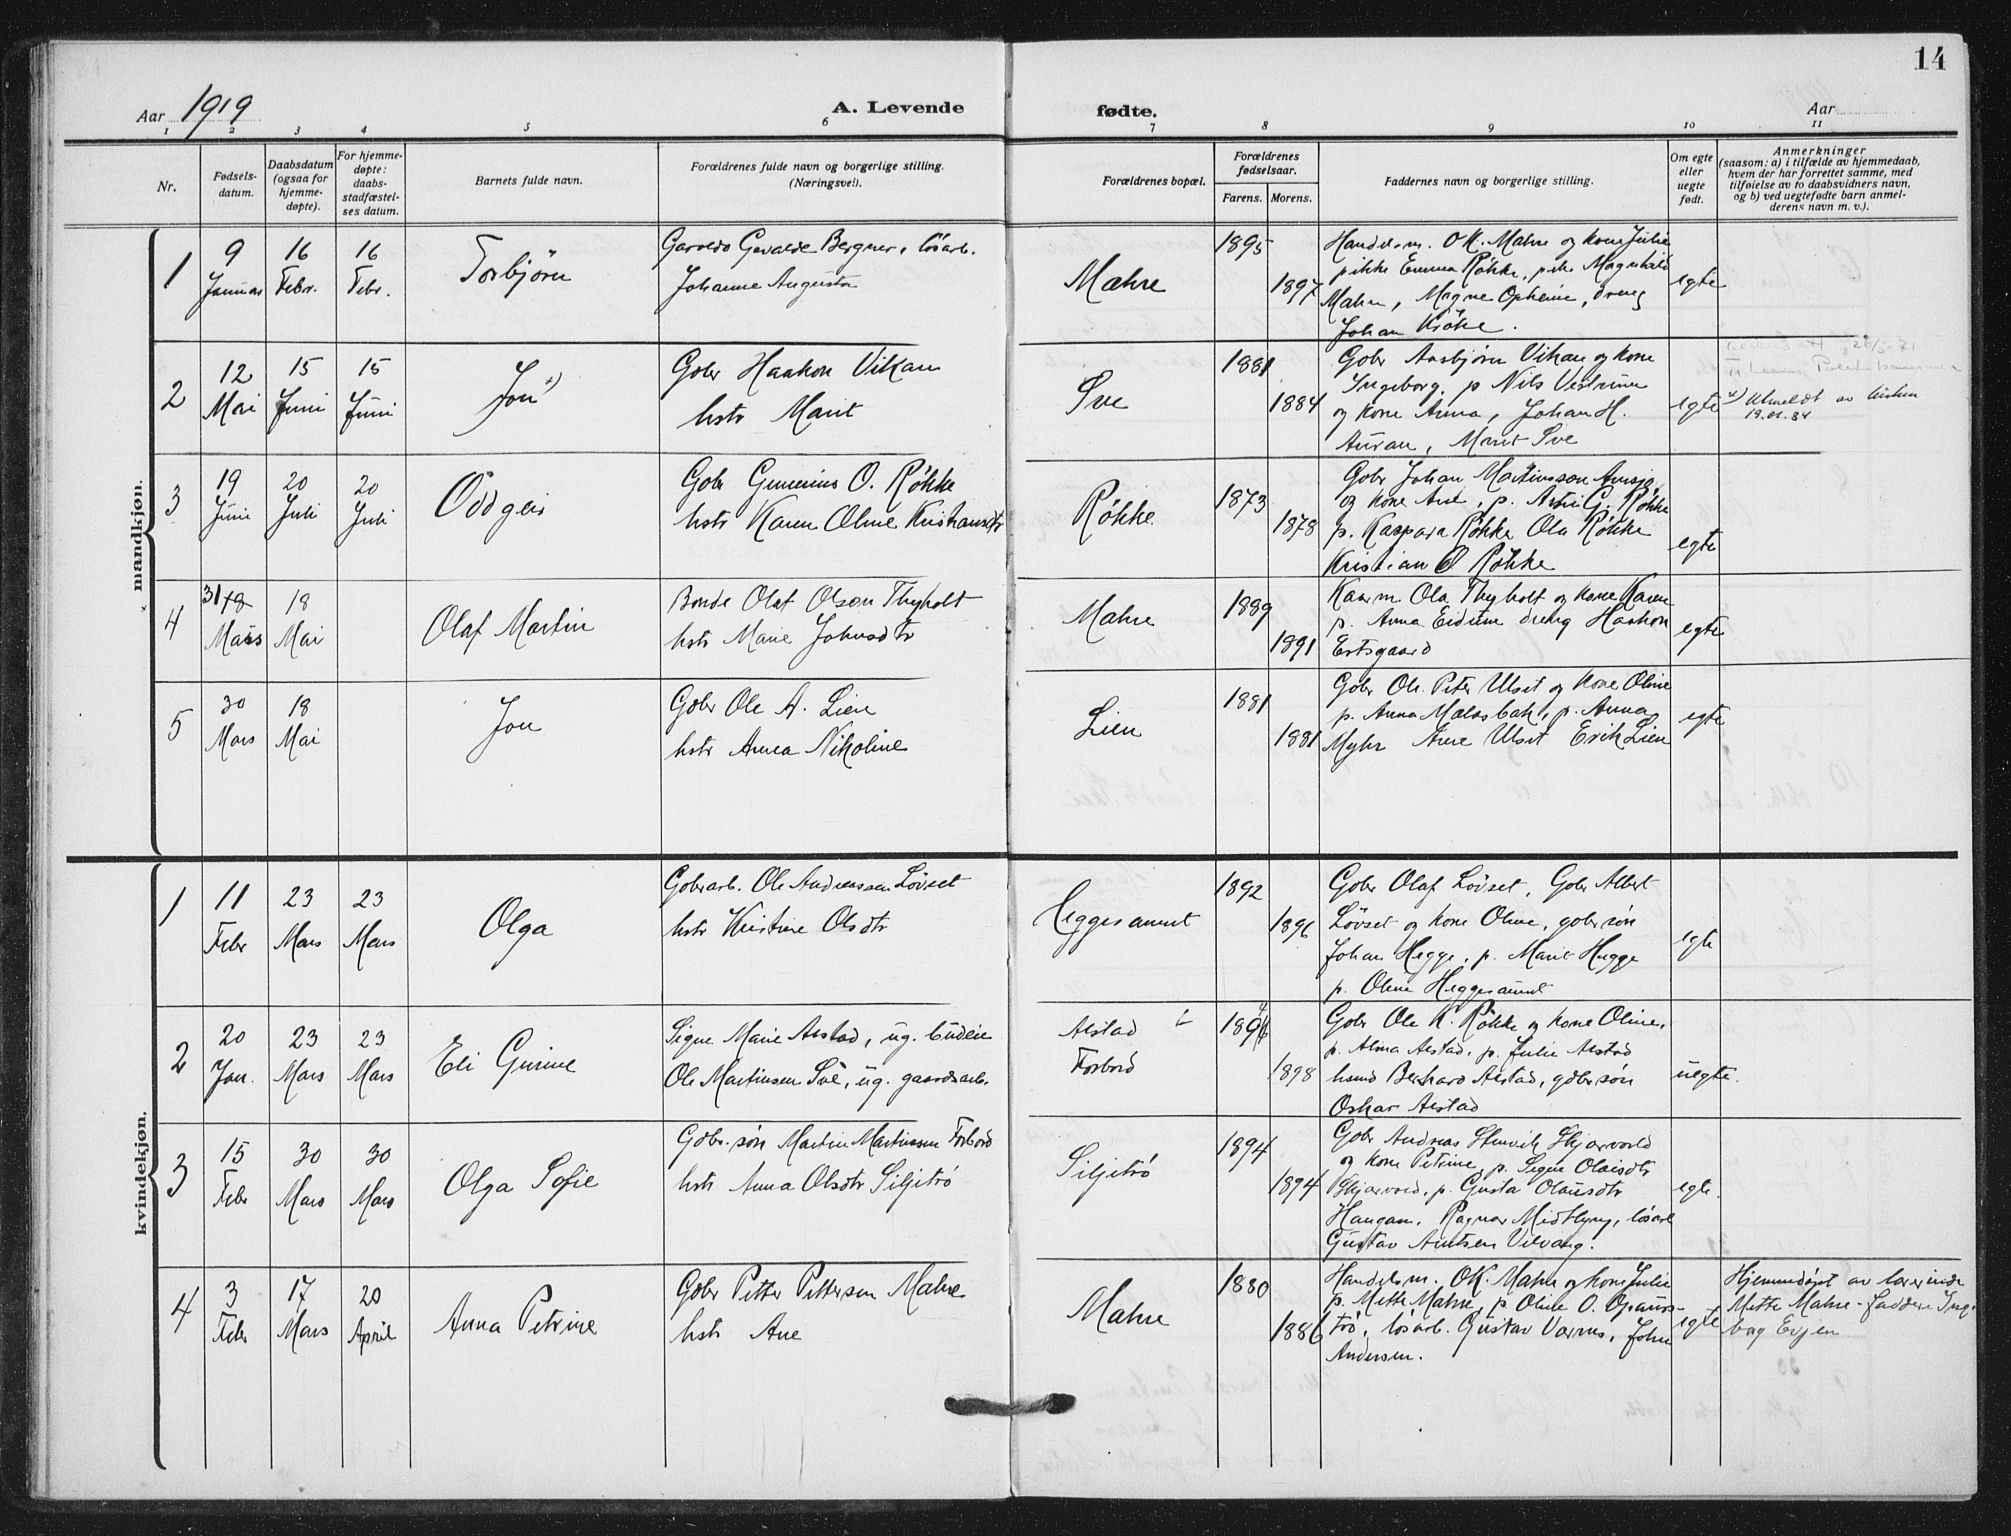 14
Aar 1919
A. Levende fødte.
Aar
1 2 3 4 5 6 7 8 9 10 11
Nr.
Fødsels-
datum.
Daabsdatum
(ogsaa for
hjemme-
døpte).
For hjemme-
døpte:
daabs-
stadfæstel-
ses datum.
Barnets fulde navn.
Forældrenes fulde navn og borgerlige stilling.
(Næringsvei).
Forældrenes bopæl.
Forældrenes
fødselsaar.
Farens. Morens.
Faddernes navn og borgerlige stilling.
Om egte
eller
uegte
født.
Anmerkninger
(saasom: a) i tilfælde av hjemmedaab,
hvem der har forrettet samme, med
tilføielse av to daabsvidners navn,
og b) ved uegtefødte barn anmel-
derens navn m. v.).
mandkjøn.
1
9
Januar
16
Febr.
16
Febr.
Torbjörn
Bergner, lösarb.
Johanne Augusta
Mahre
1895
1897
Handelsm. O.K. Mahre og kone Julie
pike Emma Røkke, pike Magnhild
Mahre, Magne Opheim, dreng
Johan Røkke.
egte
2
12
Mai
15
Juni
15
Juni
Jon x)
Gbr Haakon Vikan
hstr Marit
Sve
1881
1884
Gbr Aasbjörn Vikan og kone
Ingeborg, p Nils
og kone Anna, Johan H.
Auran, Marit Sve
egte
x) Utmeldt av kirken
19.01.84
3
19
Juni
20
Juli
20
Juli
Oddgeir
Gbr Gunerius O. Røkke
hstr Karen Oline Kristiansdtr
Røkke
1873
1878
Gbr Johan Martinsson
og kone Ane, p. G. Røkke
p. Kaspara Røkke Ola Røkke
Kristian O Røkke
egte
4
31 18
Mars
18
Mai
Olaf Martin
Bonde Olaf Olsen Thyholt
hstr Marie Johnsdtr
Mahre
1889
1891
Kaarm. Ola Thyholt og kone Karen
p. Anna Eidum dreng Haakon
Ertsgaard
egte
5
30
Mars
18
Mai
Jon
Gbr Ole A. Lien
hstr Anna Nikoline
Lien
1881
1881
Gbr Ole Peter Ulset og kone Oline
p. Anna Malasbak, p. Anna
Myhr Ane Ulset Erik Lien
egte
kvindekjøn.
1
11
Febr
23
Mars
23
Mars
Olga
Gbrarb. Ole Andreassen Lövset
hstr Kristine Olsdtr
Heggesaunet
1892
1896
Gbr Olaf Lövset, Gbr Albert
Lövset og kone Oline, gbrsön
Johan Hegge, p. Marit Hegge
p. Oline Heggesaunet
egte
2
20
Jan.
23
Mars
23
Mars
Eli Gurine
Signe Marie Aastad, ug. budeie
Ole Martinsen Sve, ug. gaardsarb.
Aastad
Forbord
1896
1898
Gbr Ole K. Røkke og kone Oline,
p. Alma Aastad, p. Julie Aastad
husmd Berhard Aastad, gbrsön
Oskar Aastad
uegte.
3
15
Febr
30
Mars
30
Mars
Olga Sofie
Gbr. sön Martin Martinsen Forbord
hstr Anna Olsdtr Siljetrö
Siljitrö
1894
1894
Gbr Andreas Stenvik Skjærvold
og kone Petrine, p. Signe Olausdtr
Skjærvold, p. Gusta Olausdtr
Haugan, Ragnar Midthjug, lösarb
Gustav Arntsen Vilvang.
egte.
4
3
Febr
17
Mars
20
April
Anna Petrine
Gbr Petter Pettersen Mahre
hstr Ane
Mahre
1880
1886
Handelsm. OK. Mahre og kone Julie
p. Mette Mahre, p. Oline O. Opaurs-
trö, lösarb. Gustav Værnes, John
Andersen.
egte
Hjemmedöpt av lærerinde
Mette Mahre - faddere Inge-
borg Evjen